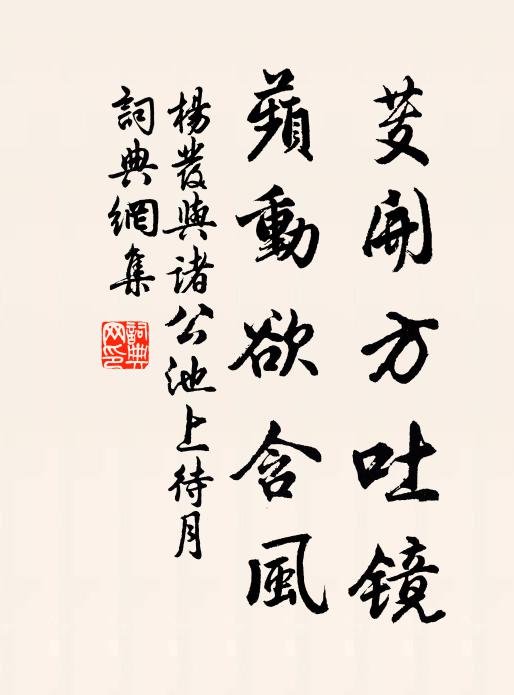 菱開方吐鏡
蘋動欲含風
楊發與諸公池上待月
詞典網集
詞典网印